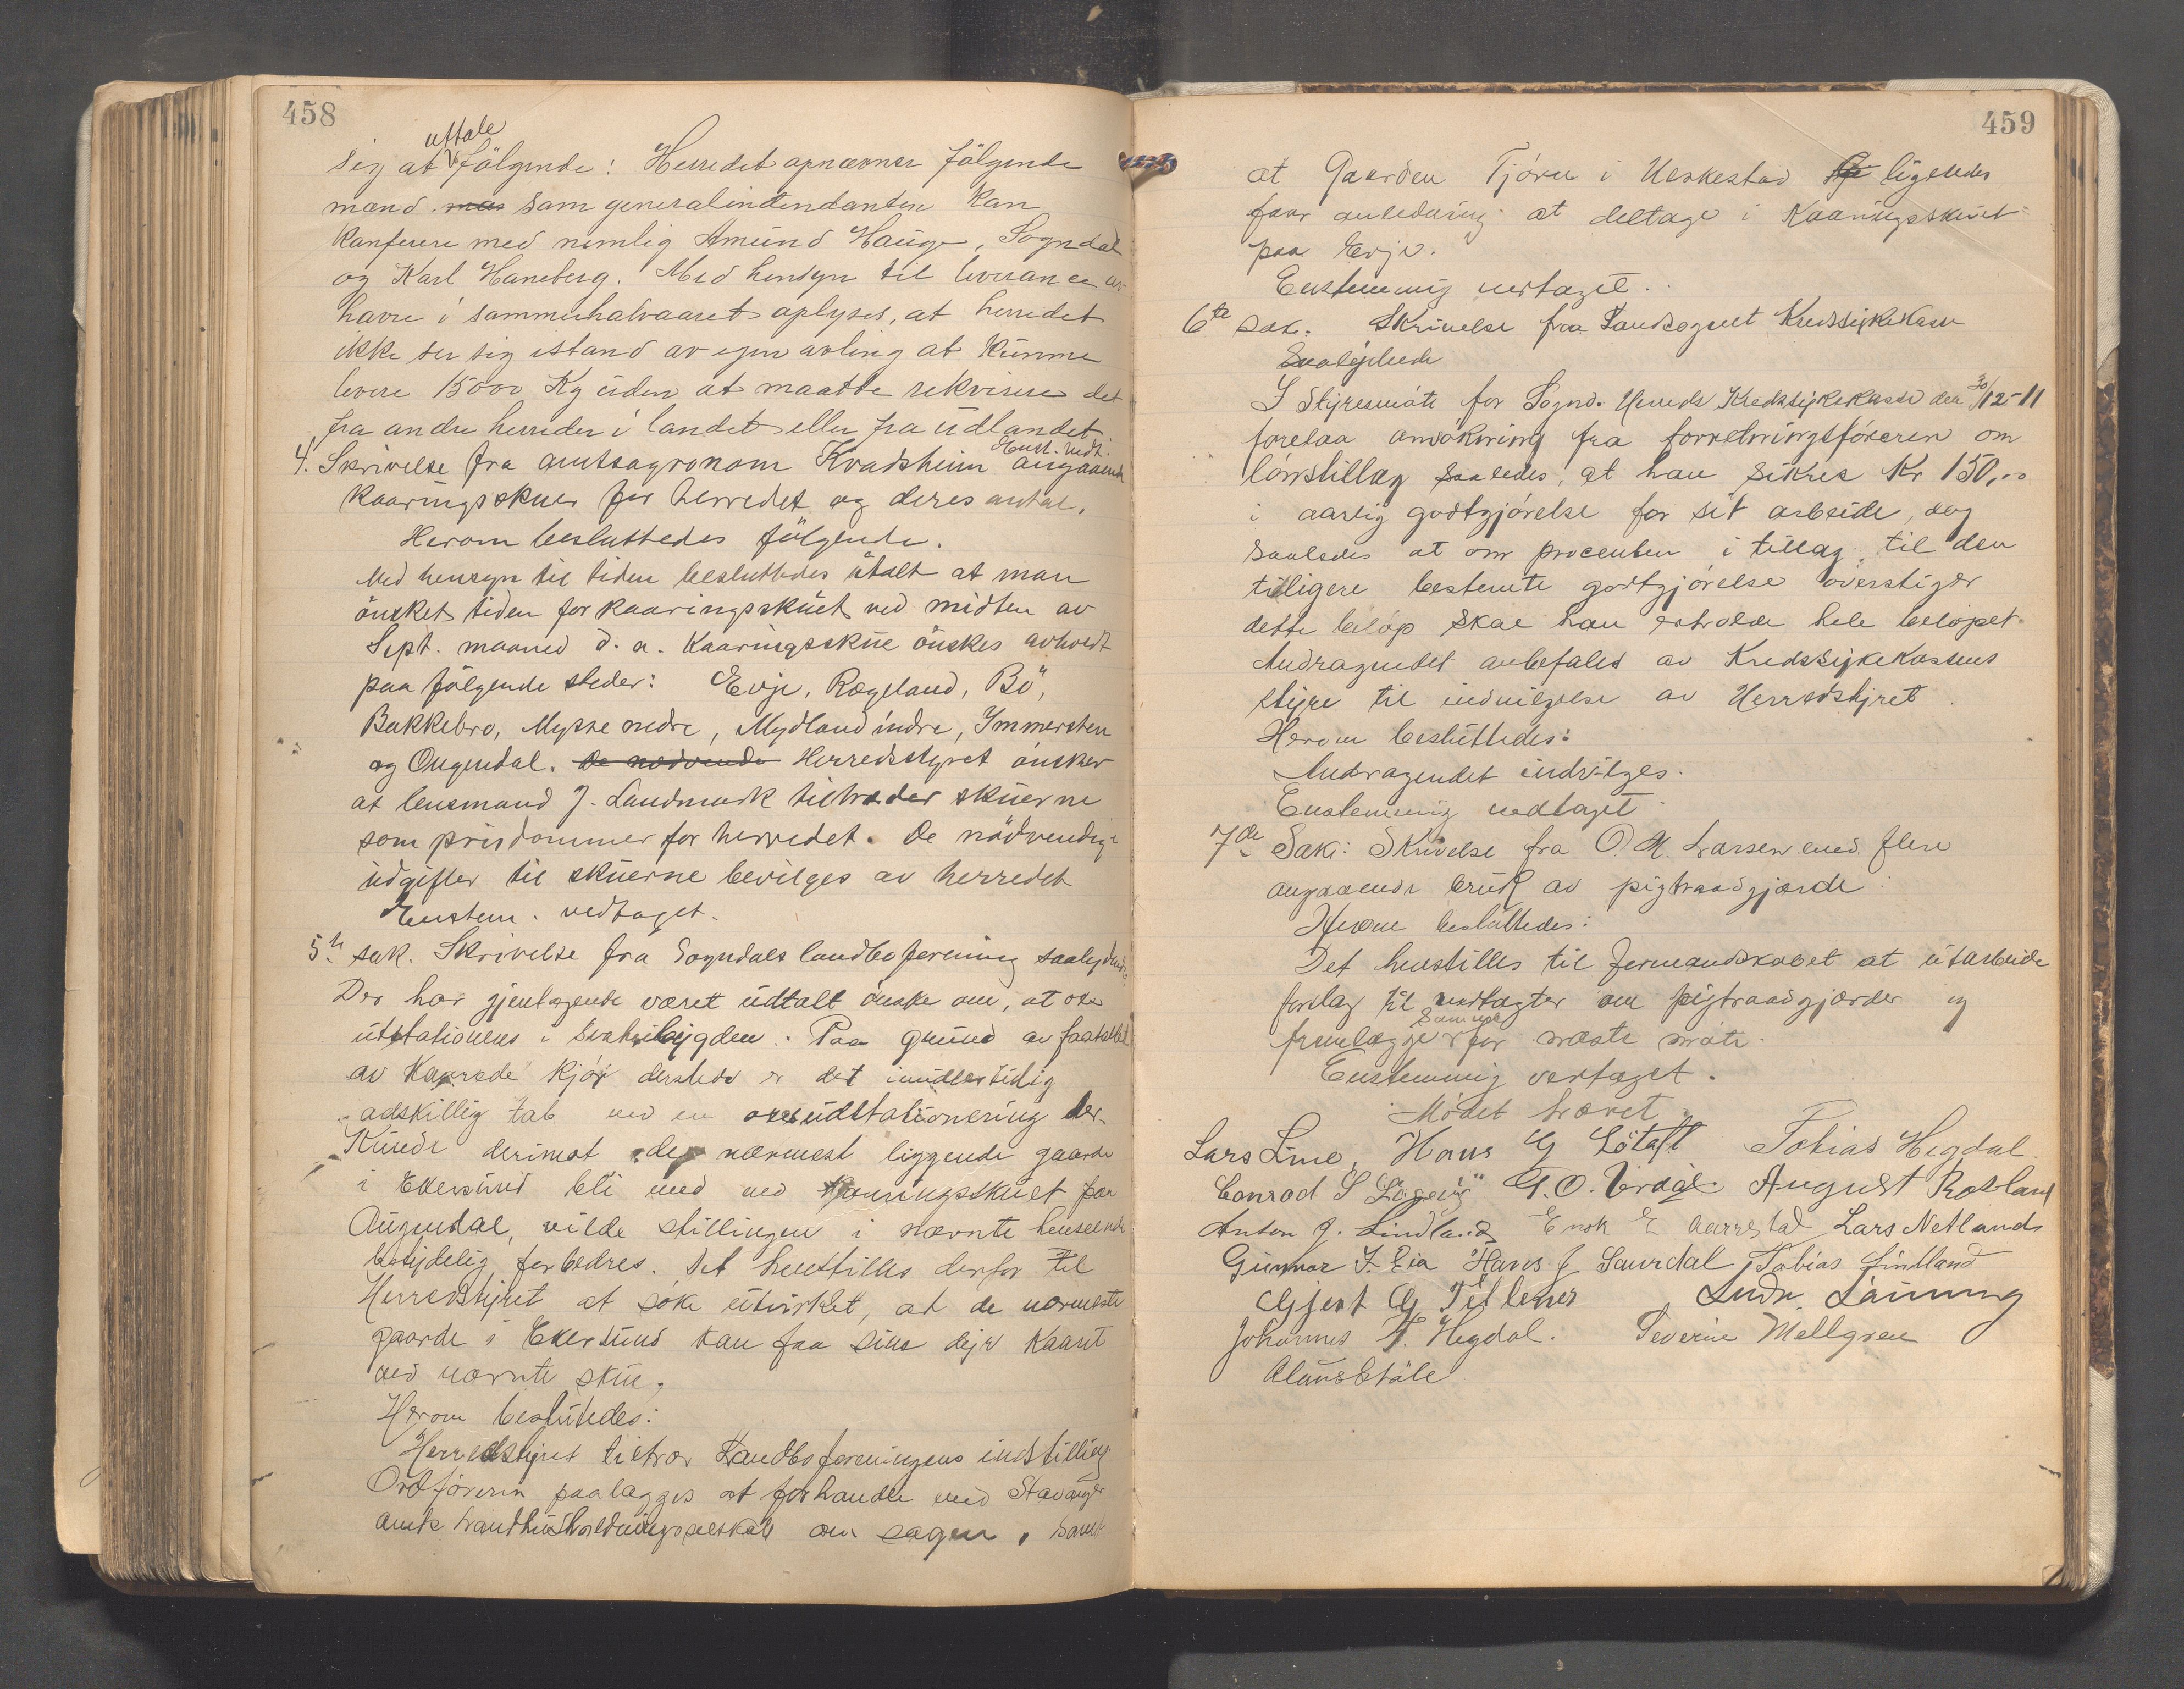 458
uttale
sig at følgende: Herredet opnævner følgende
mænd som generalintendanten kan
konferere med nemlig Amund Hauge, Sogndal
og Karl Haneberg. Med hensyn til leverance av
havre i sommerhalvaaret oplyses, at herredet
ikke ser sig istand av egen avling at kunne
levere 15000 Kg uden at maatte rekvirere det
fra andre herreder i landet eller fra udlandet.
Enst. vedt.
4. Skrivelse fra amtsagronom Kvadsheim angaaende
kaaringsskuer for herredet og deres antal.
Herom besluttedes følgende.
Med hensyn til tiden besluttedes utalt at man
önsket tiden for kaaringsskuet ved midten av
Sept. maaned d. a. Kaaringsskue önskes avholdt
paa følgende steder: Evje, Rægeland, Bö,
Bakkebro, Mysse nedre, Mydland indre, Immersten
og Ougendal. De nødvende Herredsstyret ønsker
at lensmand J. Landmark tiltræder skuerne
som prisdommer for herredet. De nödvendige
udgifter til skuerne bevilges av herredet
Enstem. vedtaget.
5te sak. Skrivelse fra Sogndals landboforening saalydende:
Der har gjentagende været udtalt önske om, at oxe
utstationeres i bygden. Paa grund av faatallet
av Kaarede kjør dersteds er det imidlertidig
adskillig tab ved en oxeudstationering der.
Kunde derimot de nærmest liggende gaarde
i Ekersund bli med ved Kaaringsskuet paa
Augendal, vilde stillingen i nævnte henseende
betydelig forbedres. Det henstilles derfor til
Herredstyret at søke utvirket, at de nærmeste
gaarde i Ekersund kan faa sine dejr kaaret
ved nævnte skue.
Herom beslutedes:
Herredstyret tiltrær Landboforeningens indstilling
Ordføreren paalægges at forhandle med Stavanger
amts landhusholdningsselskab om sagen, samt
459
at Gaarden Tjørn i Heskestad ligeledes
faar anledning at deltage i Kaaringsskuet
paa Evje.
Enstemmig vedtaget.
6te sak. Skrivelse fra Sandsognet Kredssykekasse
Saalydende
I Styresmøte for Sognd. Herreds Kredssykekasse den 30/12-11
forelaa ansøkning fra forretningsføreren om
lønstillæg saaledes, at han sikres Kr 150,00
i aarlig godtgjørelse for sit arbeide, dog
saaledes at om procenten i tillæg til den
tidligere bestemte godtgjørelse overstiger
dette beløp skal han erholde hele beløpet.
Andragendet anbefales av Kredssykekassens
styre til indvilgelse av Herredstyret.
Herom besluttedes:
Andragendet indvilges.
Enstemmig vedtaget
7de Sak: Skrivelse fra O. A. Larsen med flere
angaaende bruk av pigtraadgjærde:
Herom besluttedes:
Det henstilles til formandskabet at utarbeide
forslag til vedtægter om pigtraadgjærder og
samme
fremlægge for næste møte.
Enstemmig vedtaget.
Mødet hævet
Lars Line, Hans G Løtoft Tobias Hegdal.
Conrad S G. O. Urdal August Rosland
Anton J. Lindland Enok E Aarrestad Lars Netland
Gunnar T. Eia Hans J Saurdal Tobias Lindland
Gjert G Tellenes Ludv. Launing
Johannes T. Hegdal. Severin Mellgren
Claus Ståle